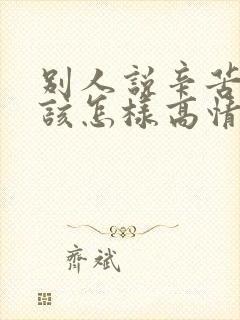 别人說辛苦
該怎樣高情
齊斌